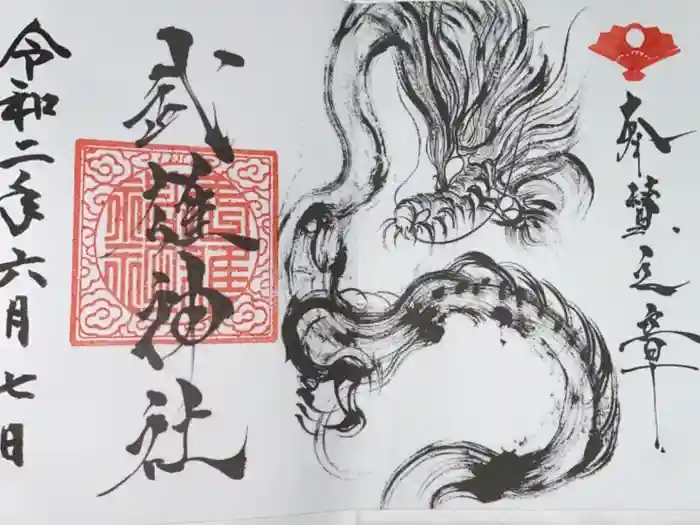 奉賛之章
武神社
令和二年六月七日